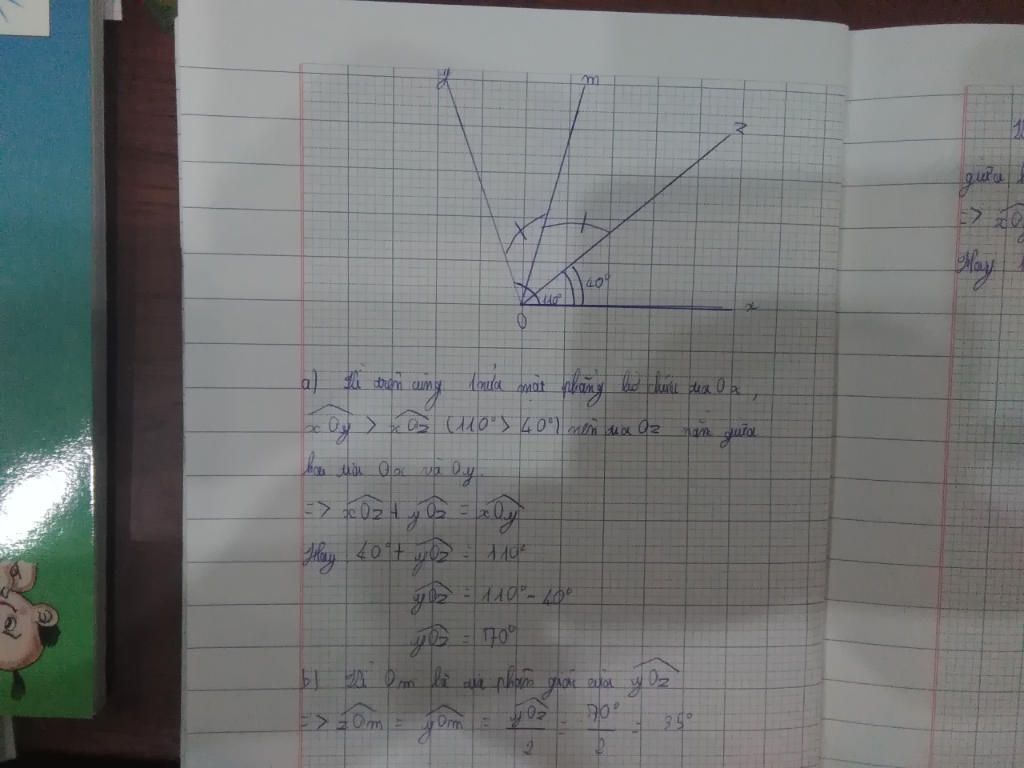 y
m
z
40°
110°
x
O
a) Vì trên cùng 1 nửa mặt phẳng bờ chứa tia Ox,
xOy > xOz (110° > 40°) nên tia Oz nằm giữa
hai tia Ox và Oy.
=> xOz + yOz = xOy
Hay 40° + yOz = 110°
yOz = 110° - 40°
yOz = 70°
b) Vì Om là tia phân giác của yOz
=> zOm = yOm = yOz/2 = 70°/2 = 35°
giữa
=> xO
Hay